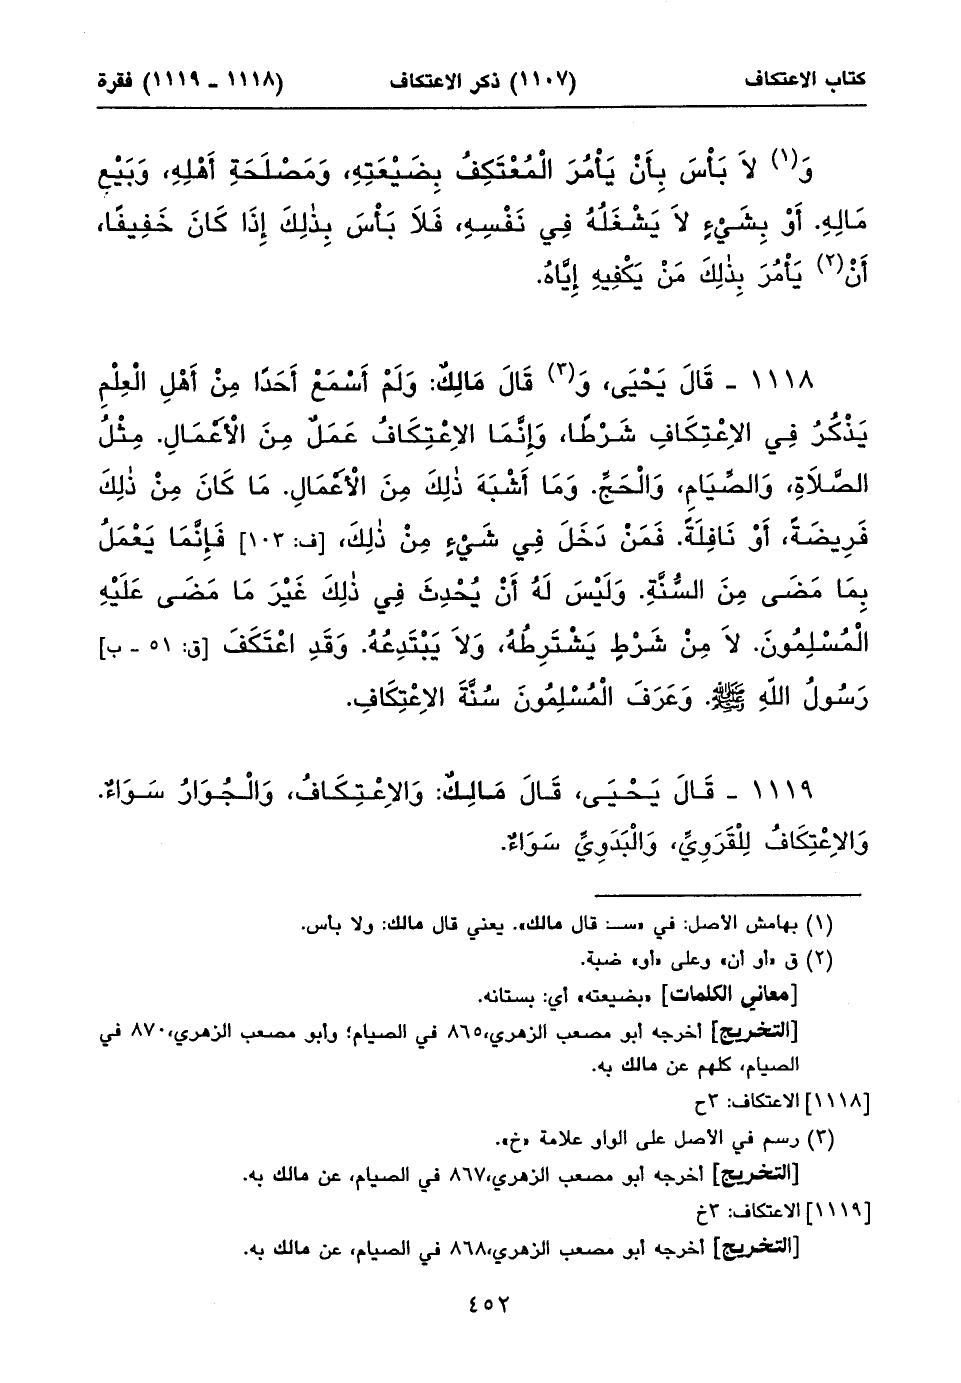 كتاب الاعتكاف (١١٠٧) ذكر الاعتكاف (١١١٨ ـ ١١١٩) فقرة
وَ(١) لاَ بَأْسَ بِأَنْ يَأْمُرَ الْمُعْتَكِفُ بِضَيْعَتِهِ، وَمَصْلَحَةِ أَهْلِهِ، وَبَيْعِ
مَالِهِ. أَوْ بِشَيْءٍ لاَ يَشْغَلُهُ فِي نَفْسِهِ، فَلاَ بَأْسَ بِذٰلِكَ إِذَا كَانَ خَفِيفًا،
أَنْ(٢) يَأْمُرَ بِذٰلِكَ مَنْ يَكْفِيهِ إِيَّاهُ.
١١١٨ ـ قَالَ يَحْيَى، وَ(٣) قَالَ مَالِكٌ: وَلَمْ أَسْمَعْ أَحَدًا مِنْ أَهْلِ الْعِلْمِ
يَذْكُرُ فِي الاِعْتِكَافِ شَرْطًا، وَإِنَّمَا الاِعْتِكَافُ عَمَلٌ مِنَ الْأَعْمَالِ. مِثْلُ
الصَّلاَةِ، وَالصِّيَامِ، وَالْحَجِّ. وَمَا أَشْبَهَ ذٰلِكَ مِنَ الْأَعْمَالِ. مَا كَانَ مِنْ ذٰلِكَ
فَرِيضَةً، أَوْ نَافِلَةً. فَمَنْ دَخَلَ فِي شَيْءٍ مِنْ ذٰلِكَ، [ف: ١٠٣] فَإِنَّمَا يَعْمَلُ
بِمَا مَضَى مِنَ السُّنَّةِ. وَلَيْسَ لَهُ أَنْ يُحْدِثَ فِي ذٰلِكَ غَيْرَ مَا مَضَى عَلَيْهِ
الْمُسْلِمُونَ. لاَ مِنْ شَرْطٍ يَشْتَرِطُهُ، وَلاَ يَبْتَدِعُهُ. وَقَدِ اعْتَكَفَ [ق: ٥١ ـ ب]
رَسُولُ اللّهِ ﷺ. وَعَرَفَ الْمُسْلِمُونَ سُنَّةَ الاِعْتِكَافِ.
١١١٩ ـ قَالَ يَحْيَى، قَالَ مَالِكٌ: وَالاِعْتِكَافُ، وَالْجُوَارُ سَوَاءٌ.
وَالاِعْتِكَافُ لِلْقَرَوِيِّ، وَالْبَدَوِيِّ سَوَاءٌ.
(١) بهامش الأصل: في «ســ: قال مالك». يعني قال مالك: ولا بأس.
(٢) ق «أو أن» وعلى «أو» ضبة.
[معاني الكلمات] «بضيعته» أي: بستانه.
[التخريج] أخرجه أبو مصعب الزهري،٨٦٥ في الصيام؛ وأبو مصعب الزهري،٨٧٠ في
الصيام، كلهم عن مالك به.
[١١١٨] الاعتكاف: ٣ح
(٣) رسم في الأصل على الواو علامة «خ».
[التخريج] أخرجه أبو مصعب الزهري،٨٦٧ في الصيام، عن مالك به.
[١١١٩] الاعتكاف: ٣خ
[التخريج] أخرجه أبو مصعب الزهري،٨٦٨ في الصيام، عن مالك به.
٤٥٢